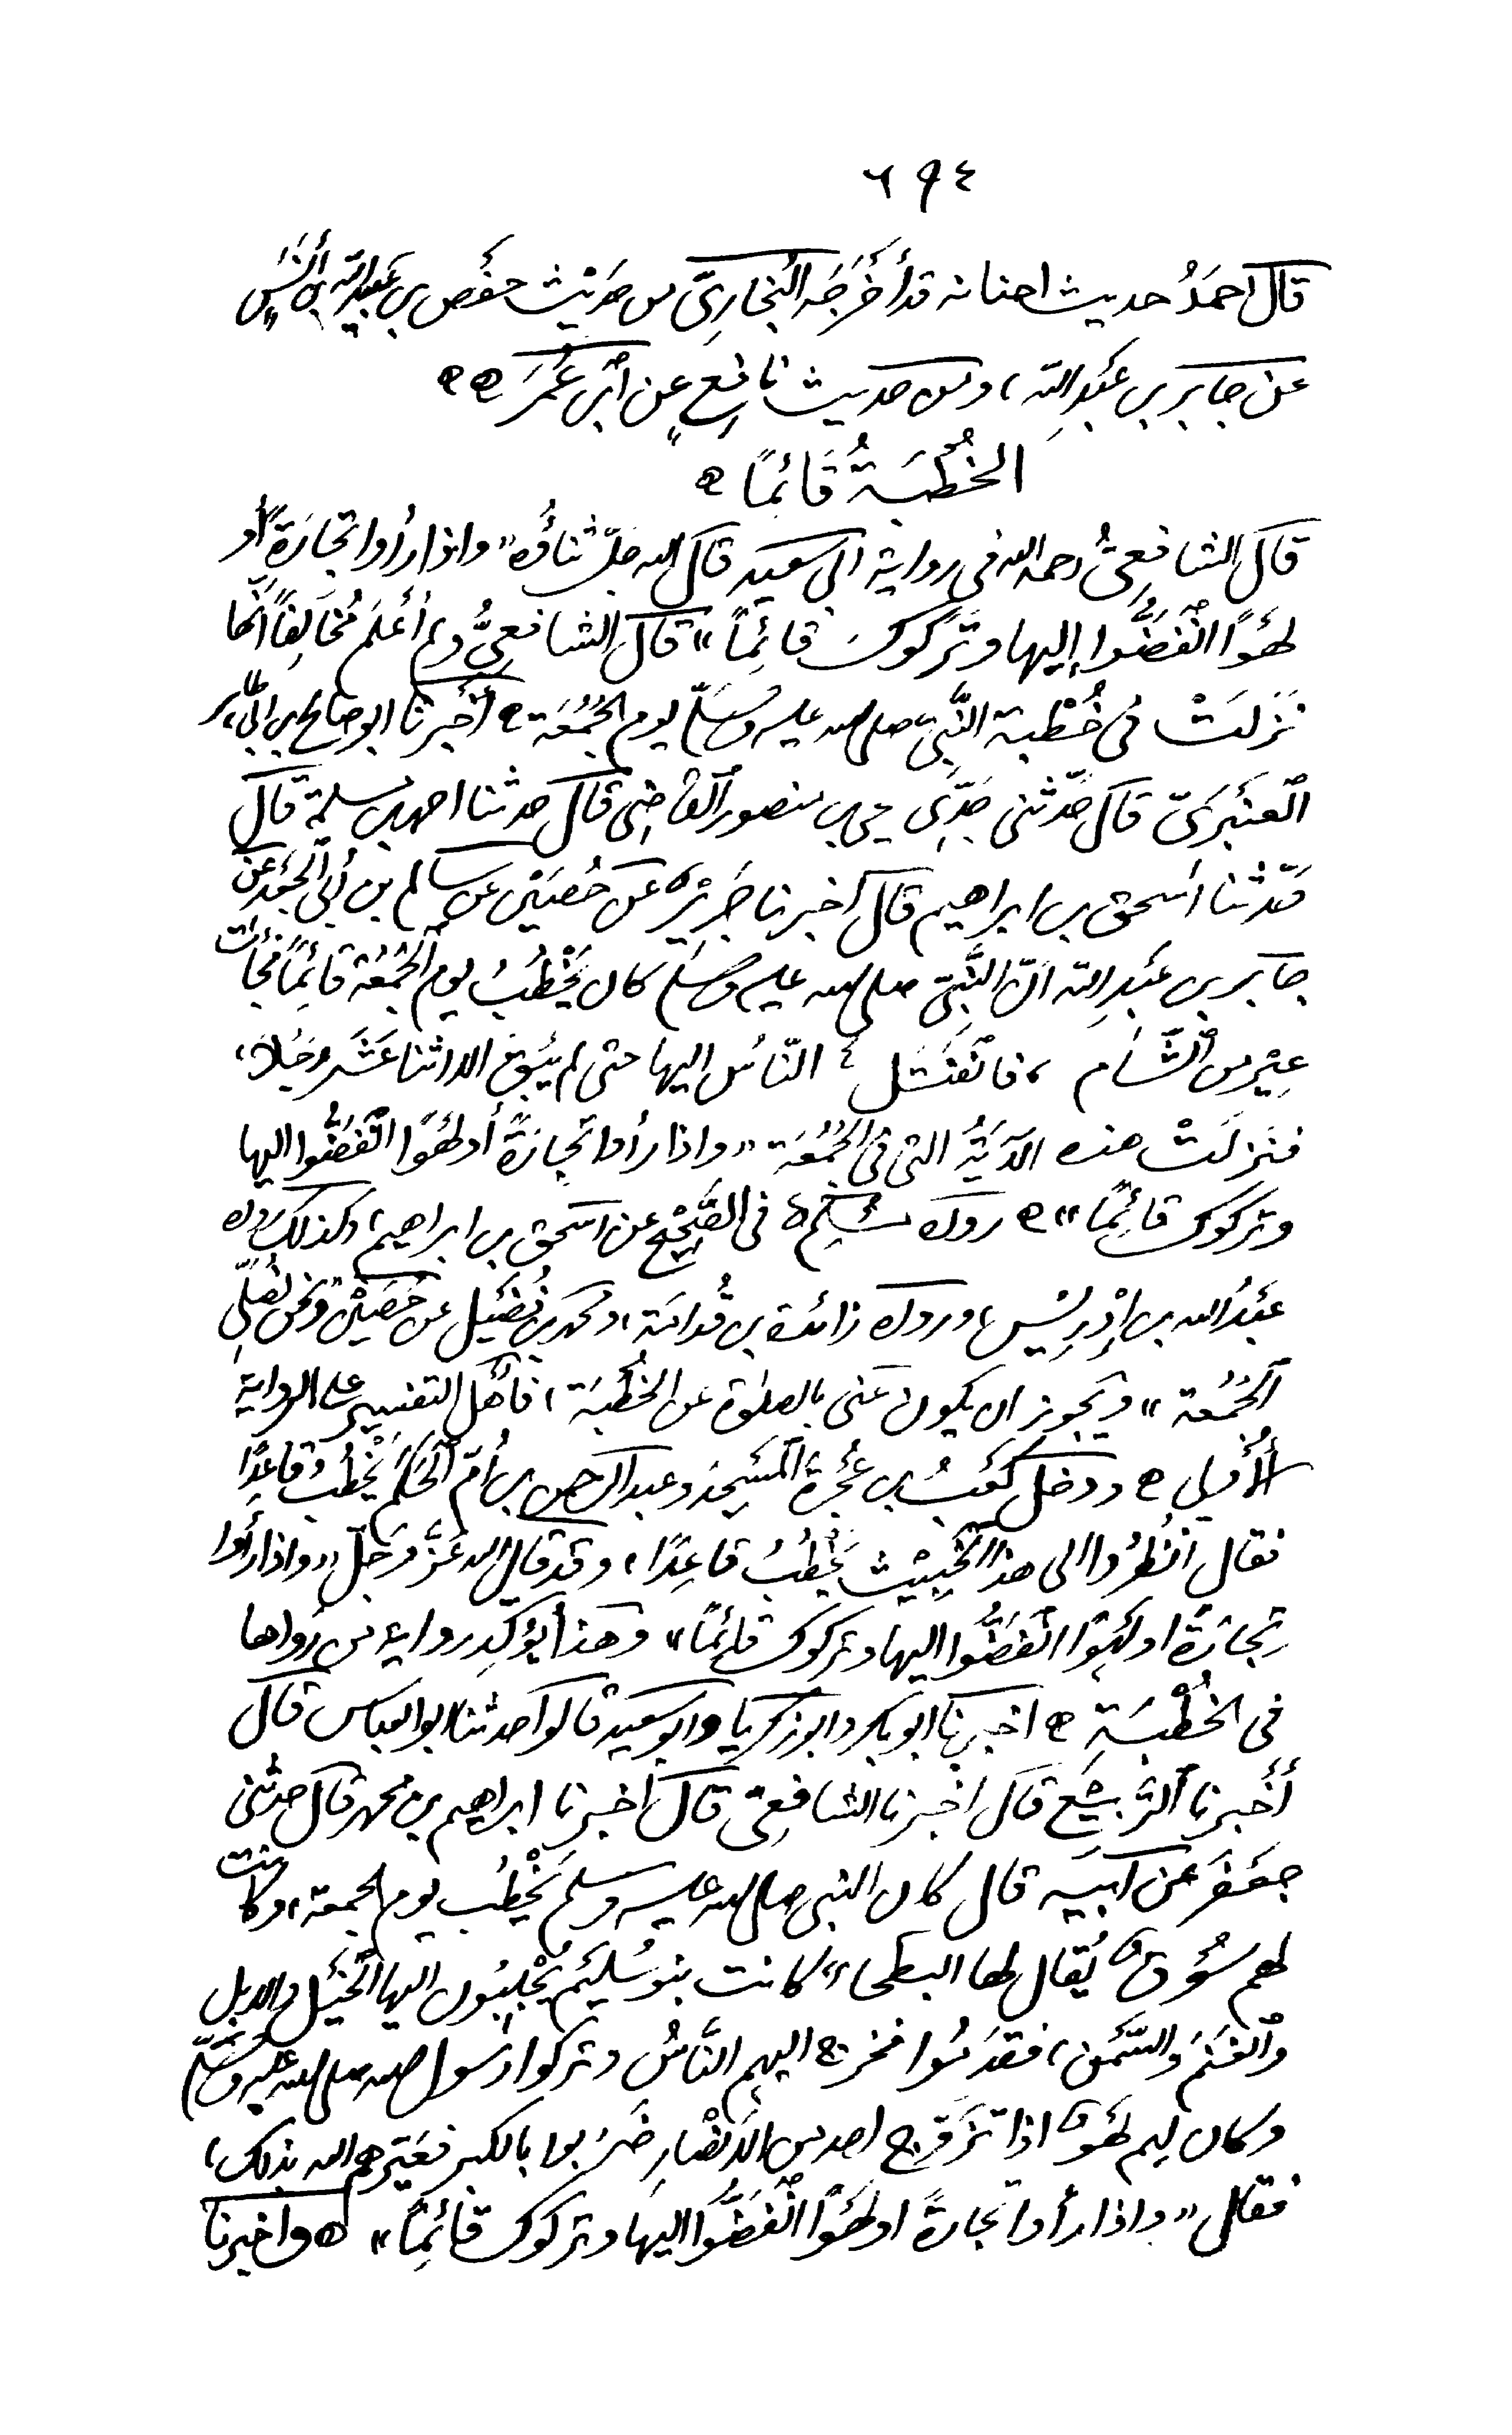 ٦٩٤
قال احمدُ حديث الحنانه قد أَخْرَجَه البُخارِىّ من حَدِيْث حفْص بن عُبَيْد اللّه بن أَنَسٍ
عن جابر بن عَبْدِ اللّه، ومن حديث نافِعٍ عن ابْن عُمَرَ ه ه
الخُطْبَةُ قَائِمًا ه
قال الشافِعىُّ رحمه الله فى رواية ابى سعيد قال الله جلّ ثناؤُه "واذا رأوا تجارَةً أو
لَهْوًا انْفَضُّوا إليها وتَرَكوكَ قائِمًا" قال الشافِعىُّ ولم أعْلَم مُخالِفًا أنَّها
نَزَلَتْ فى خُطْبة النَّبِىّ صلى الله عليه وسَلّم يوم الجُمُعَة ه أخْبرنا ابو صالح بن ابى طاهر
العنْبَرىّ قال حَدّثنى جَدِّى يحيى بن منصور القاضِى قال حدثنا احمد بن سلمة قال
حَدّثنا اسحق بن ابراهيم قال أخبرنا جَرِيْرٌ عن حُصَيْن عن سالم بن أبى الجَعْد عن
جابر بن عَبْدِ اللّه انّ النَّبِىّ صلى الله عليه وسَلم كان يَخْطُبُ يوم الجُمُعَة قائِمًا فجَاءَت
عِيْر من الشَّام ، فانْفَتَل النّاسُ اليها حتى لم يَبْق الا اثنا عَشَر رَجُلاً،
فنَزلَتْ هذه الآيَةُ التى فى الجُمُعَة "واذا رأوا تِجارَةً أو لَهْوًا انْفَضُّوا اليها
وتركوك قائِمًا" ه رواه مُسْلِمٌ فى الصَّحِيْح عن اسحق بن ابراهيم، وكذلك رَواه
عَبْدُ الله بن إدْرِيْس، ورواه زائدة بن قُدامَة، ومحمد بن فُضَيْل عن حُصَيْن "ونحن نُصَلِّى
الجُمُعَة" ويجوز ان يكون عَنى بالصلوة عن الخُطْبَة، فأهْل التفسير على الرواية
الأُولى ه ودخل كَعْبُ بن عُجْرَة المَسْجِدَ وعبد الرحمن بن أُمّ الحَكَم يَخْطُب قاعِدًا
فقال انْظُرُوا الى هذا الخَبِيْث يَخْطُبُ قاعِدًا، وقد قال الله عَزَّ وَجَلّ "واذا رأَوا
تِجارَةً او لَهْوًا انْفَضُّوا اليها وتركوك قائِمًا" وهذا يُؤكِّد رواية من رَواها
فى الخُطْبَةِ ه اخبرنا ابو بكر وابو زكريا وابو سَعِيْد قالوا حدثنا ابو العباس قال
أَخْبرنا الرَّبِيْع قال اخبرنا الشافِعِىّ قال أخبرنا ابراهيم بن محمد قال حدثنى
جعفَر عن أبيه قال كان النبى صلى الله عليه وسلم يَخْطُب يوم الجمعة، وكانت
لهم سُوْقٌ يُقال لها البطحا، كانت بنو سُلَيْم يَجْلِبُون اليها الخَيْل والابل
والغَنَم والسَّمْن، فقَدِمُوا فخرج اليهم النّاسُ وتركوا رسول الله صلى الله عليه وسَلّم
وكان لهم لَهْوٌ اذا تزَوَّج احد من الأنْصارِ ضَرَبوا بالكبر فعَيَّرهم الله بذلك،
فقال "واذا رأوا تجارةً او لَهْوًا انْفَضُّوا اليها وتركوك قائِمًا" ه واخبرنا